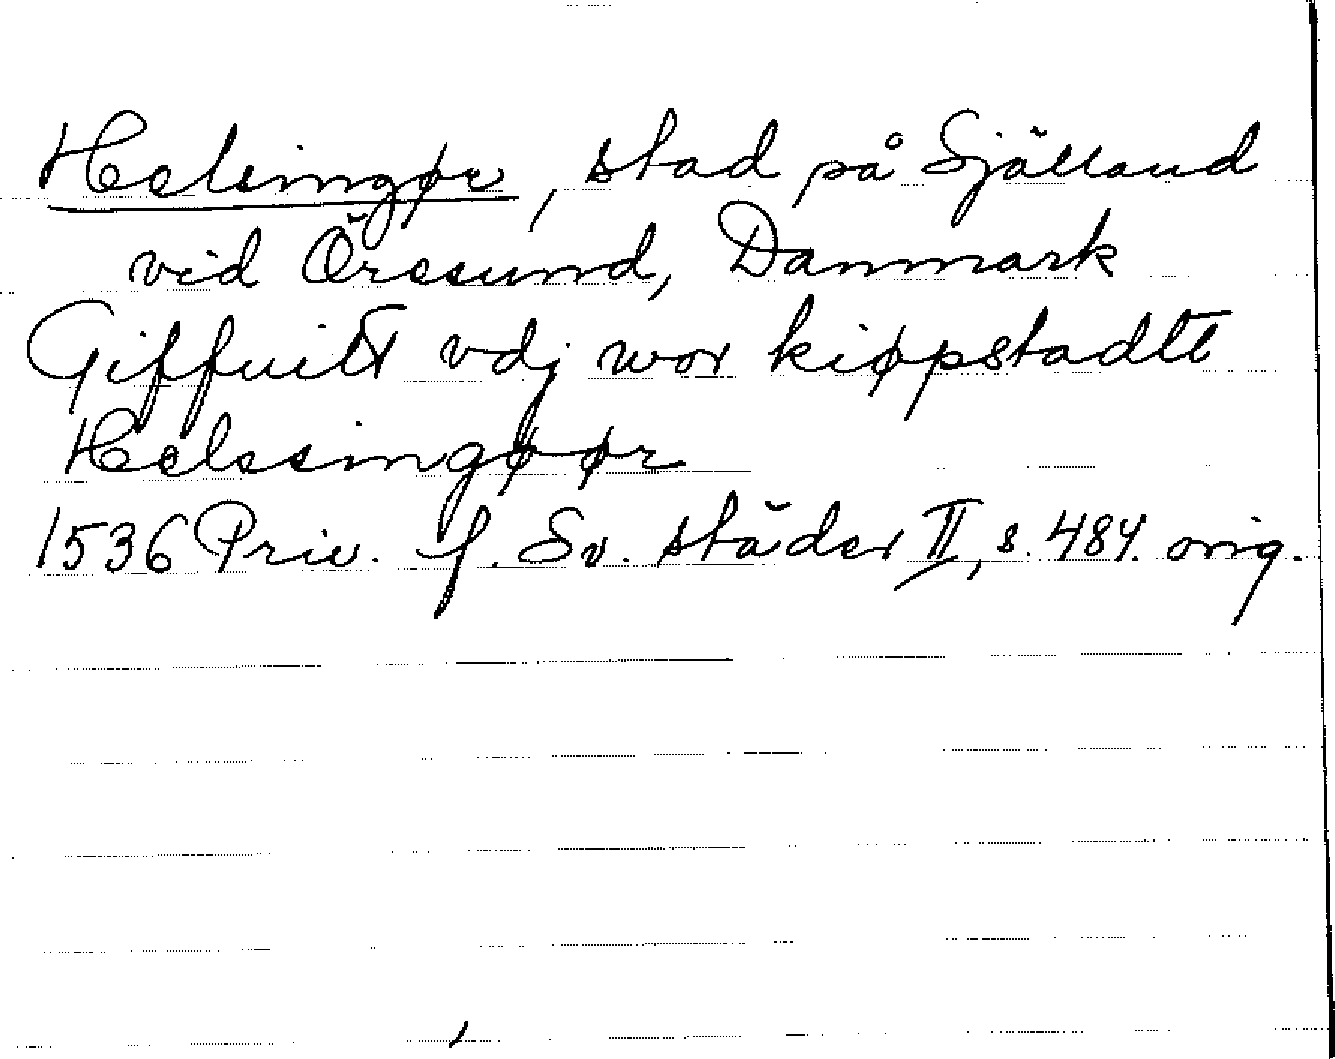 Helsingør, stad på Själland
vid Öresund, Danmark
Giffuitt vdj wor kiøpstadtt
Helssingøør
1536 Priv. f. Sv. städer II, s. 484. orig.